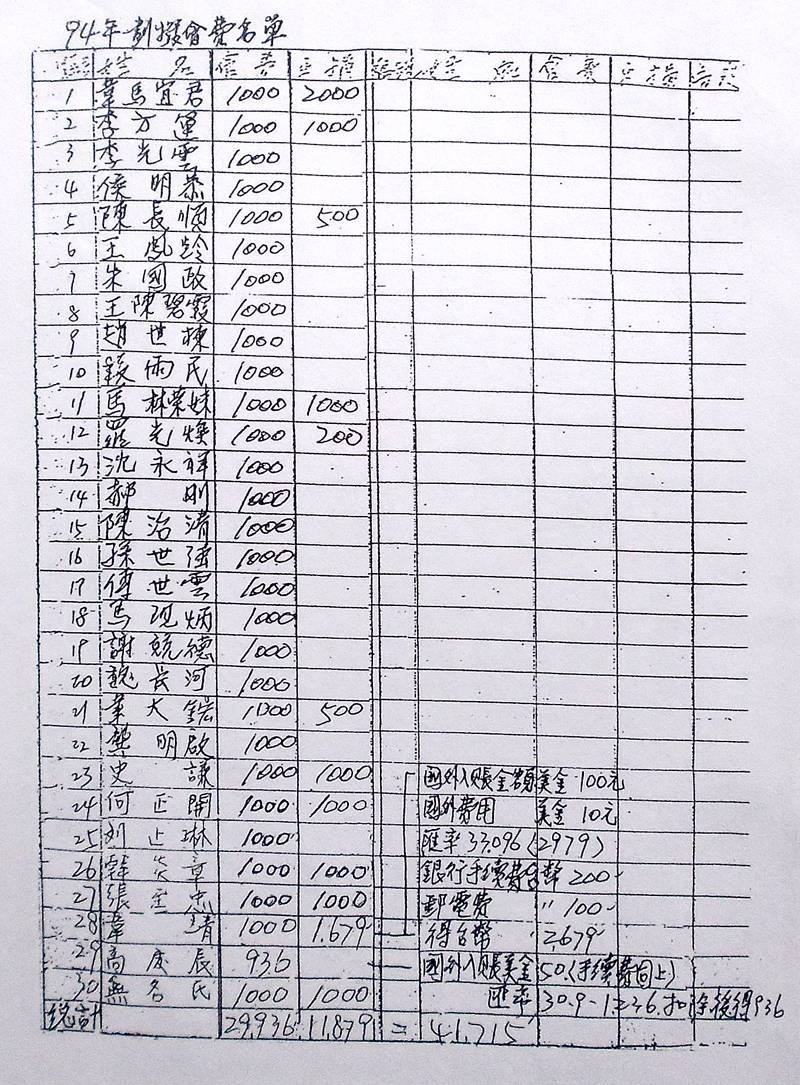 94年劃撥會費名單
編號 姓名 會費 互捐 編號 姓名 會費 互捐 備註
1 韋馬宜君 1000 2000
2 李方運 1000 1000
3 李光雲 1000
4 侯明恭 1000
5 陳長順 1000 500
6 王鳳齡 1000
7 朱國政 1000
8 王陳碧霞 1000
9 趙世棟 1000
10 錢雨民 1000
11 馬林榮妹 1000 1000
12 羅光煥 1000 200
13 沈永祥 1000
14 郝剛 1000
15 陳治清 1000
16 孫世強 1000
17 傅世雲 1000
18 馬現炳 1000
19 謝競德 1000
20 魏長河 1000
21 葉大鋐 1000 500
22 龔明啟 1000
23 史謙 1000 1000 國外入賬金額美金100元
24 何正開 1000 1000 國外費用 美金10元
25 劉正琳 1000 匯率33.096(2979)
26 韓炎章 1000 1000 銀行手續費台幣200-
27 張至忠 1000 1000 郵電費 〃100-
28 韋靖 1000 1.679 得台幣 2679-
29 高庚辰 936 國外入賬美金50.(手續費同上)
30 無名氏 1000 1000 匯率30.9-1236.扣除後得936
總計 29.936 11.879 = 41.715